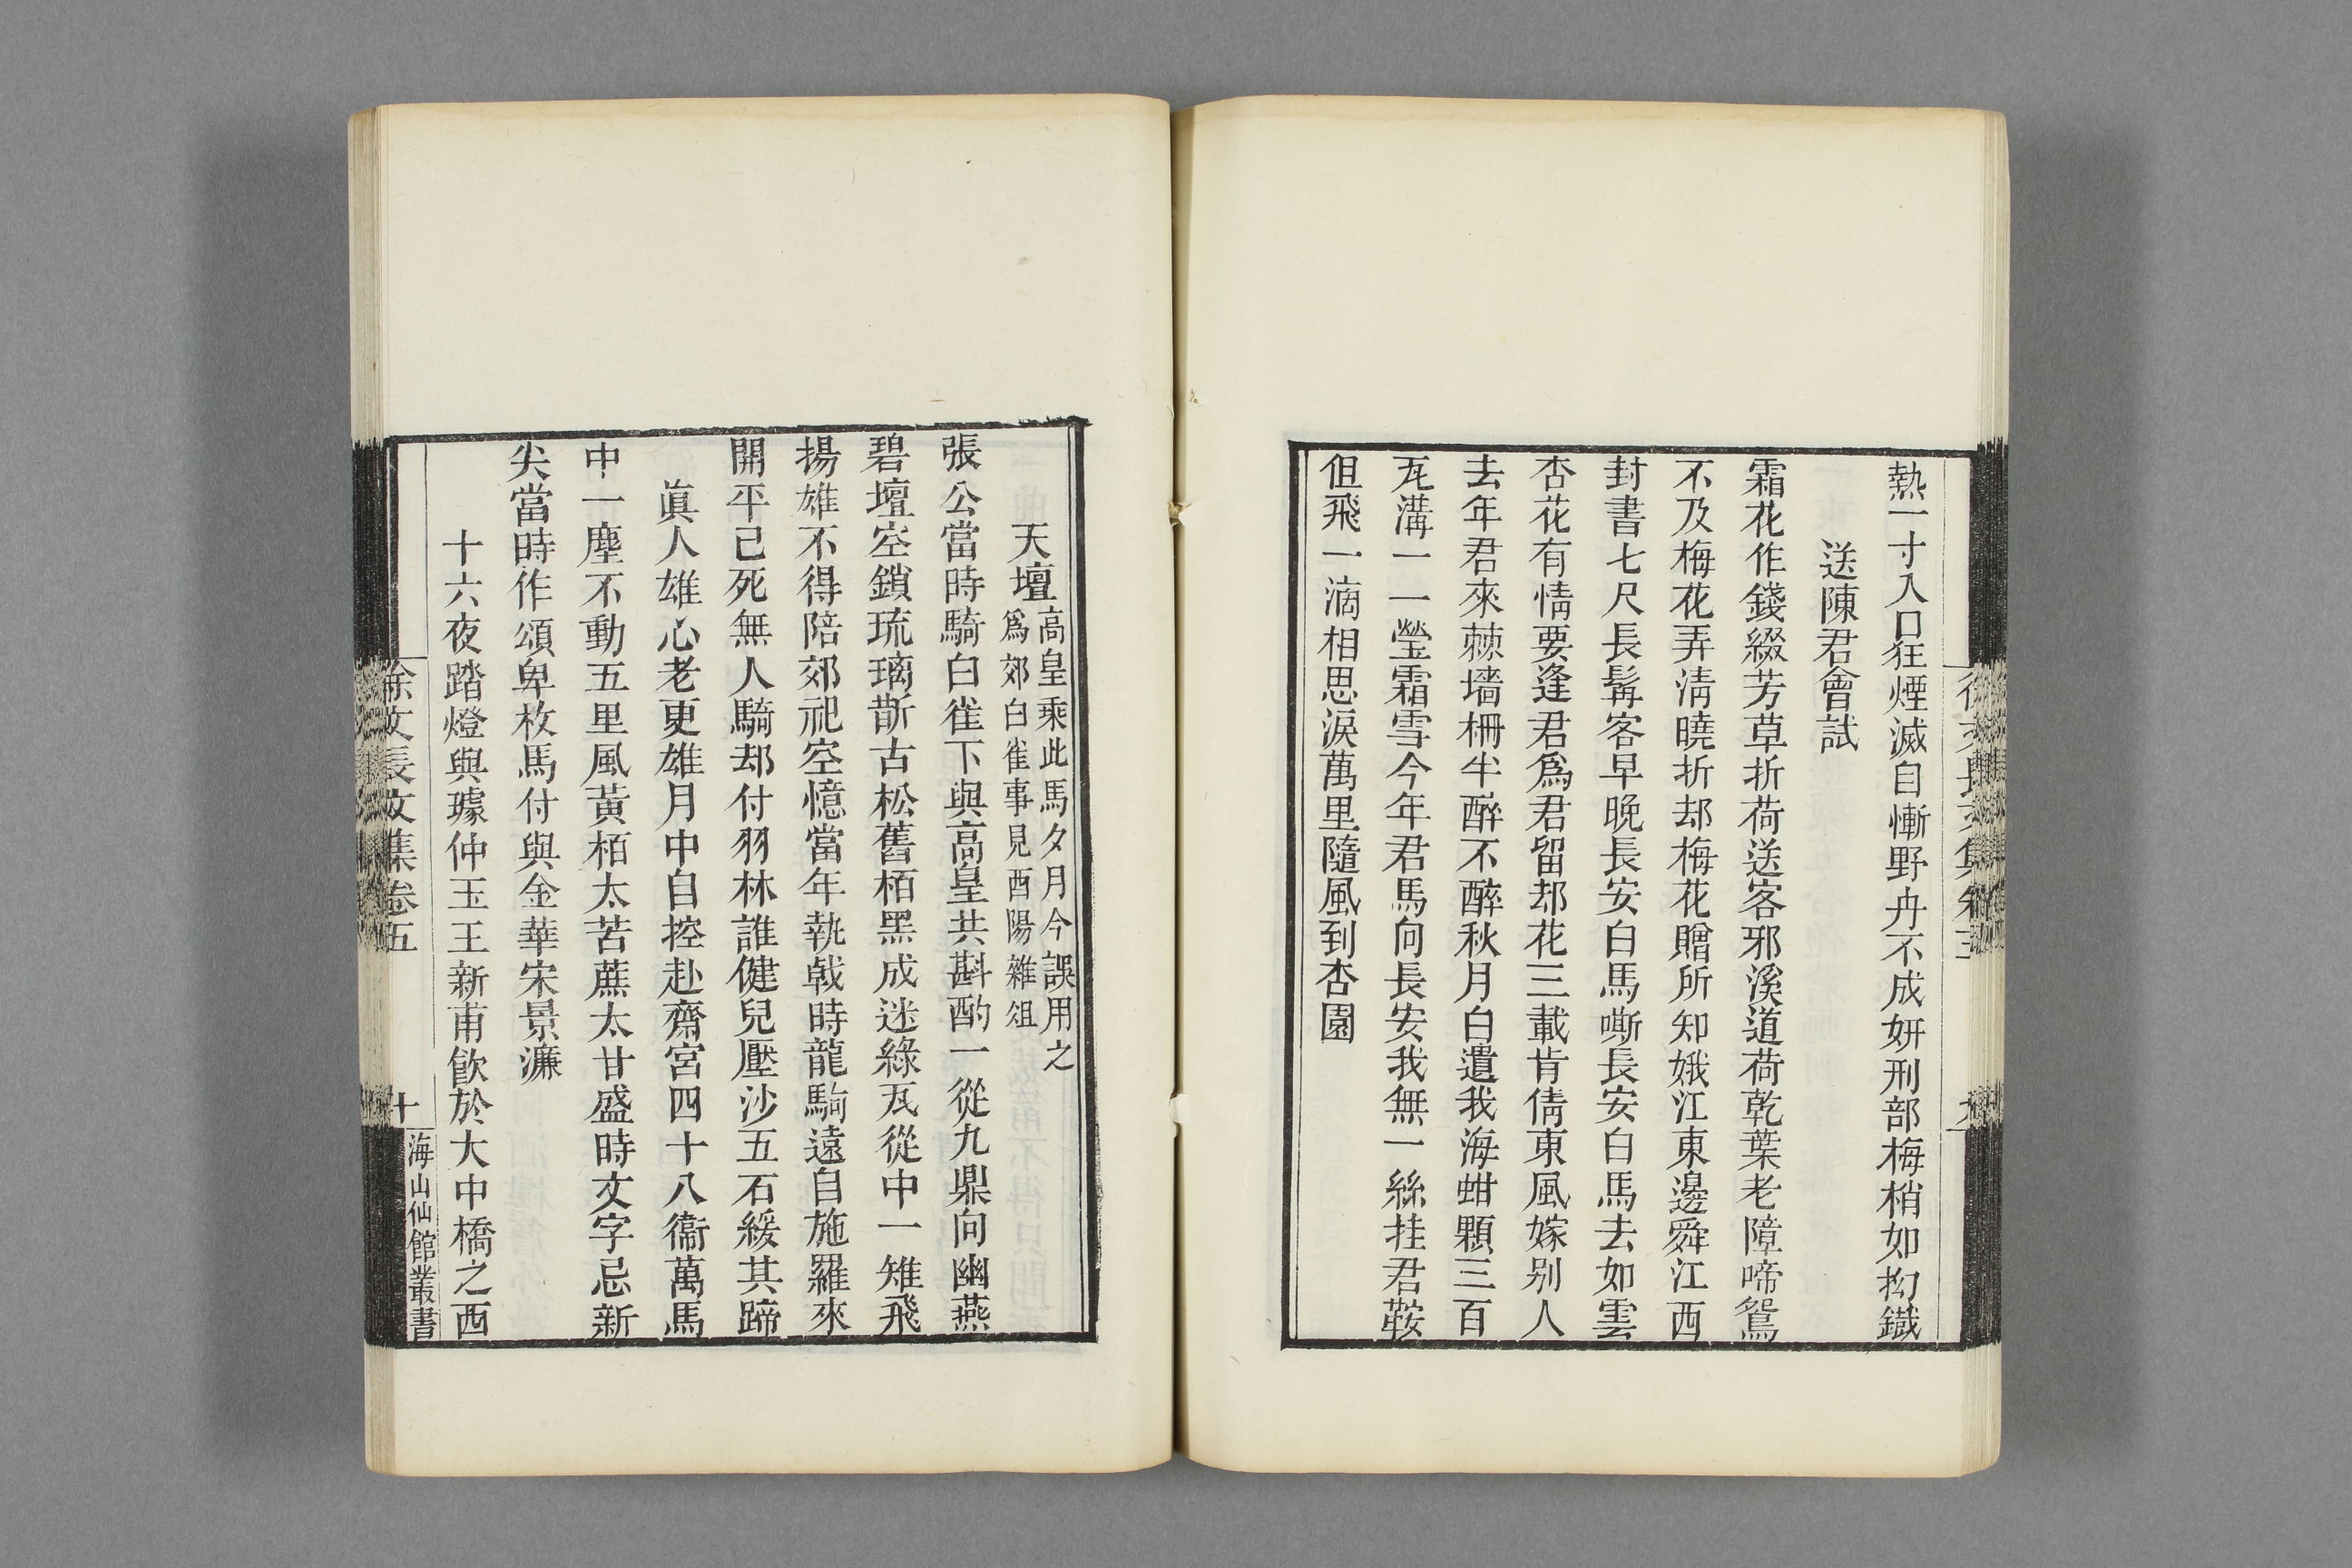 熱一寸入口狂煙滅自慚野冉不成妍刑部梅梢如拗鐵
送陳君會試
霜花作錢綴芳草折荷送客邪溪道荷乾葉老障啼鴛
不及梅花弄淸曉折却梅花贈所知娥江東邊舜江西
封書七尺長髯客早晚長安白馬嘶長安白馬去如雲
杏花有情要逢君爲君留却花三載肯倩東風嫁别人
去年君來棘墻柵半醉不醉秋月白遺我海蚶顆三百
瓦溝一一瑩霜雪今年君馬向長安我無一絲挂君鞍
但飛一滴相思淚萬里隨風到杏園
徐文長文集卷五
九
天壇高皇乘此馬夕月今誤用之
爲郊白雀事見酉陽雜俎
張公當時騎白雀下與高皇共斟酌一從九鼎向幽燕
碧壇空鎖琉璃斮古松舊栢黑成迷綠瓦從中一雉飛
揚雄不得陪郊祀空憶當年執戟時龍駒遠自施羅來
開平已死無人騎却付羽林誰健兒壓沙五石緩其蹄
眞人雄心老更雄月中自控赴齋宮四十八衞萬馬
中一塵不動五里風黃栢太苦蔗太甘盛時文字忌新
尖當時作頌卑枚馬付與金華宋景濂
十六夜踏燈與璩仲玉王新甫飮於大中橋之西
徐文長文集卷五
十
海山仙館叢書